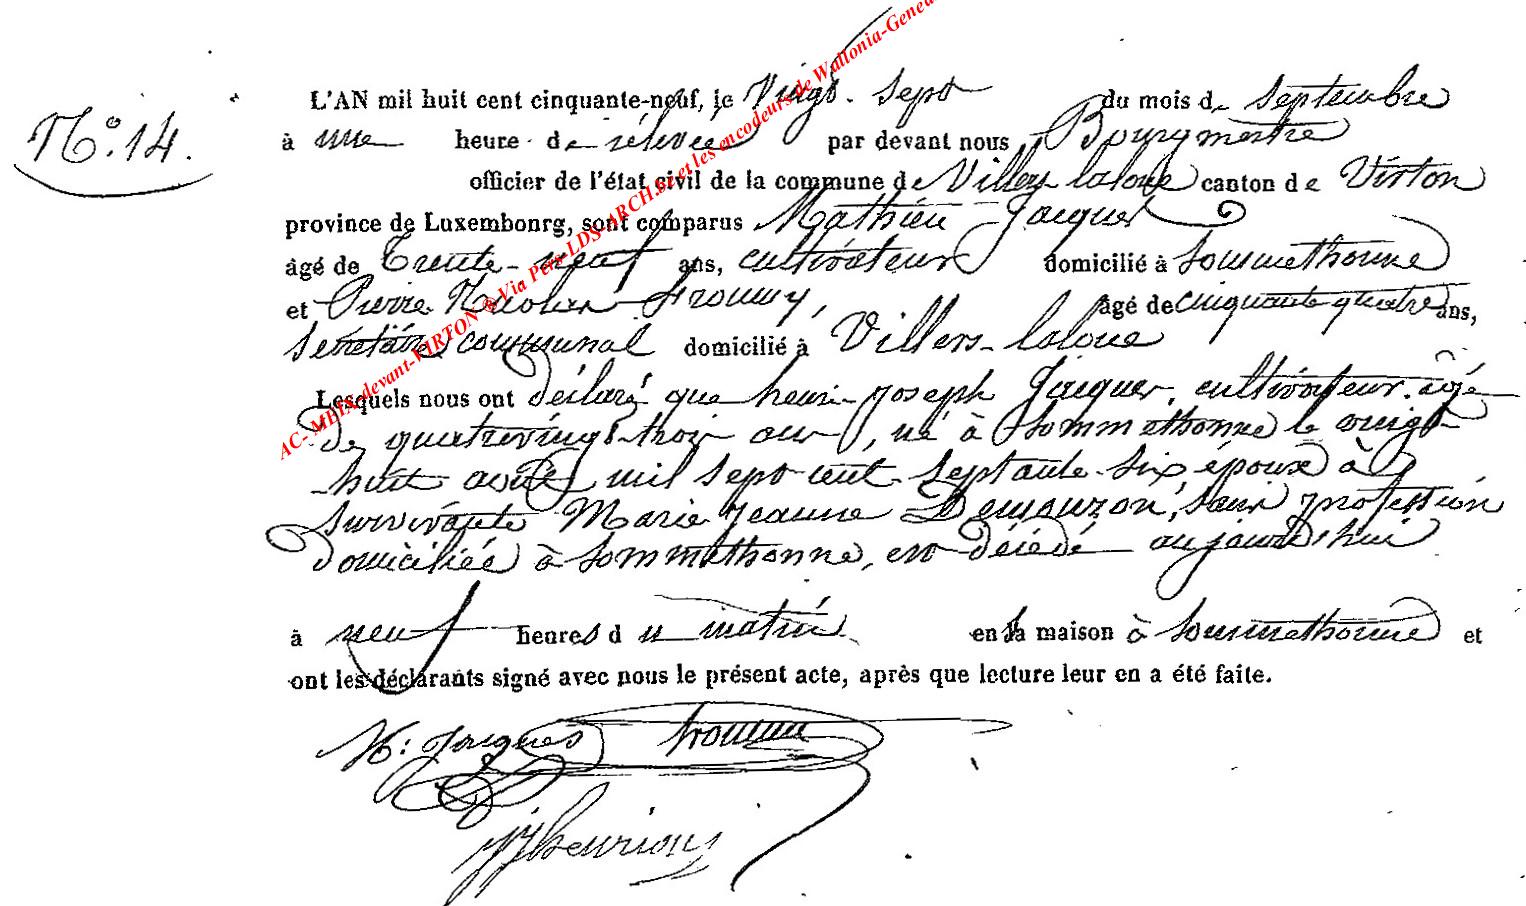 L'AN mil huit cent cinquante-neuf, le Vingt-sept du mois de septembre
N° 14.
à une heure de rélevée par devant nous Bourgmestre
officier de l'état civil de la commune de Villers-laloue canton de Virton
province de Luxembourg, sont comparus Mathieu Jacques
âgé de Trente-neuf ans, cultivateur domicilié à Sommethonne
et Pierre Nicolas Froumy, âgé de cinquante quatre ans,
Secrétaire communal domicilié à Villers-laloue
Lesquels nous ont déclaré que henri-joseph Jacques, cultivateur, âgé
de quatrevingt-trois ans, né à Sommethonne le vingt-
huit août mil sept cent septante-six, époux à
survivante Marie Jeanne sans profession
domiciliée à Sommethonne, est décédé aujourd'hui
à neuf heures du matin en sa maison à Sommethonne et
ont les déclarants signé avec nous le présent acte, après que lecture leur en a été faite.
M: Jacques Froumy
AC- MEIX-devant-VIRTON ® Via Pers-LDS-ARCH.be et les encodeurs de Wallonia-Genea